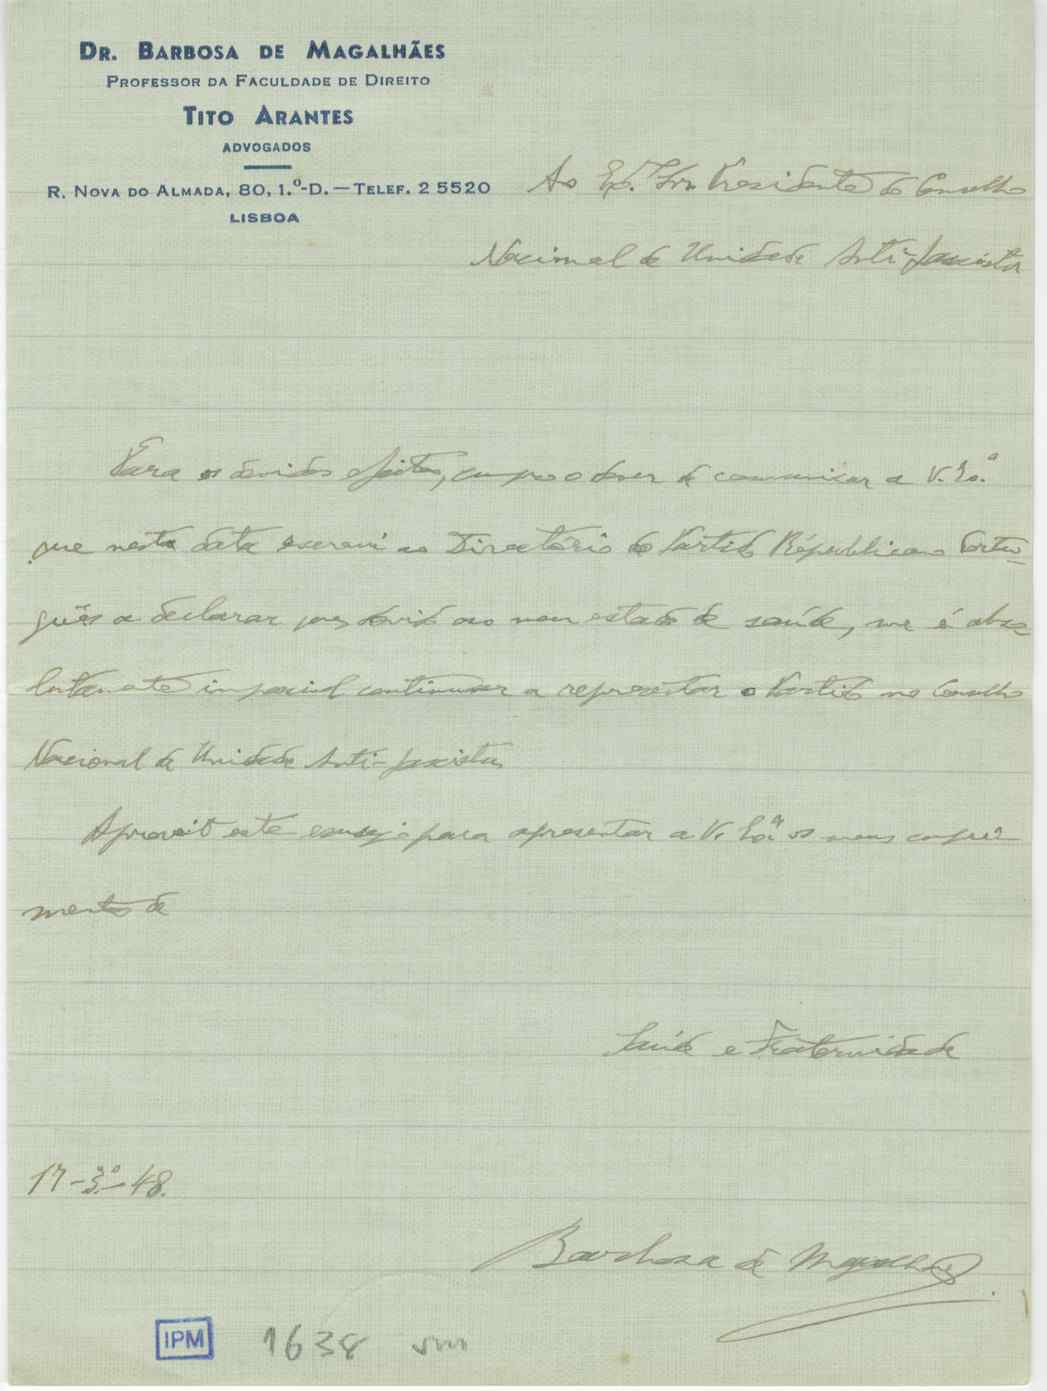 DR. BARBOSA DE MAGALHÃES
PROFESSOR DA FACULDADE DE DIREITO
TITO ARANTES
ADVOGADOS
R. NOVA DO ALMADA, 80, 1.º-D. — TELEF. 2 5520
LISBOA
Ao Ex.º Snr. Presidente do Conselho
Nacional de Unidade Anti-fascista
Para os devidos efeitos, cumpro o dever de comunicar a V. Ex.ª
que nesta data escrevi ao Directório do Partido Républicano Portu-
guês a declarar que, devido ao meu estado de saúde, me é abso
lutamente impossivel continuar a representar o Partido no Conselho
Nacional de Unidade Anti-fascista.
Aproveito este ensejo para apresentar a V. Ex.ª os meus cumpri-
mentos de
Saúde e Fraternidade
17-3.º-48.
Barbosa de Magalhães
IPM
1638